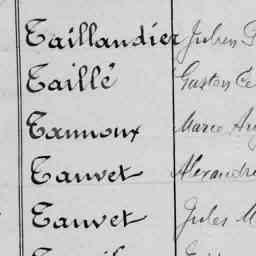 Taillandier Julien
Taillé Gaston
Tannoux Marce
Tauvet Alexandre
Tauvet Jules M